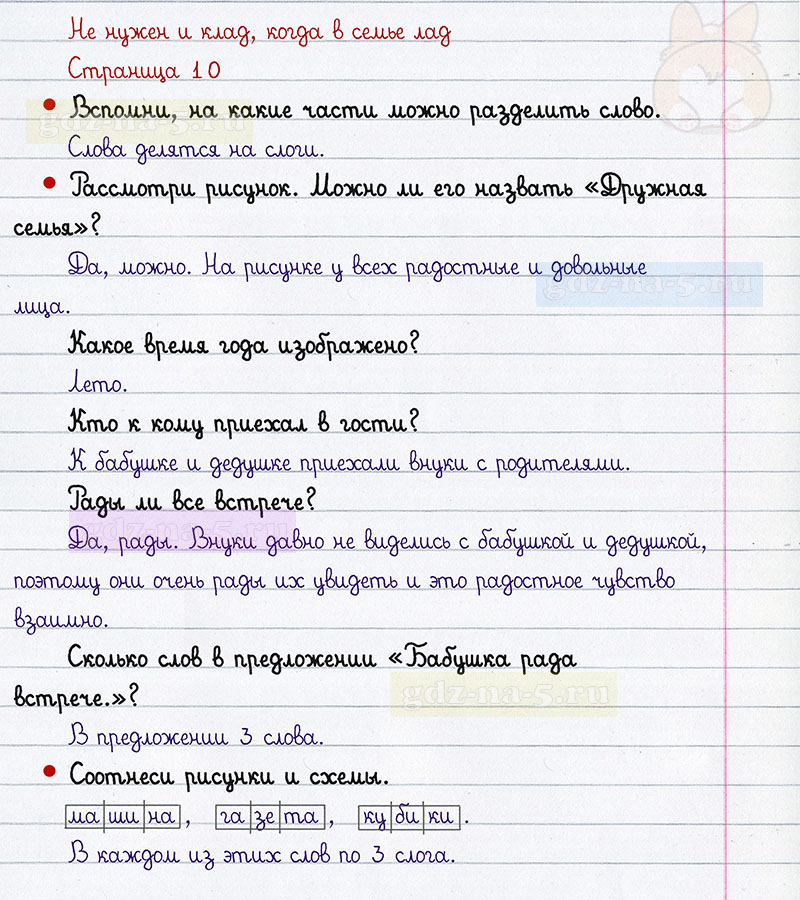 Не нужен и клад, когда в семье лад
Страница 10
• Вспомни, на какие части можно разделить слово.
gdz-na-5.ru
Слова делятся на слоги.
• Рассмотри рисунок. Можно ли его назвать «Дружная
семья»?
Да, можно. На рисунке у всех радостные и довольные
gdz-na-5.ru
лица.
Какое время года изображено?
Лето.
Кто к кому приехал в гости?
К бабушке и дедушке приехали внуки с родителями.
Рады ли все встрече?
gdz-na-5.ru
Да, рады. Внуки давно не виделись с бабушкой и дедушкой,
поэтому они очень рады их увидеть и это радостное чувство
взаимно.
Сколько слов в предложении «Бабушка рада
встрече.»?
gdz-na-5.ru
В предложении 3 слова.
• Соотнеси рисунки и схемы.
ма|ши|на, га|зе|та, ку|би|ки.
В каждом из этих слов по 3 слога.